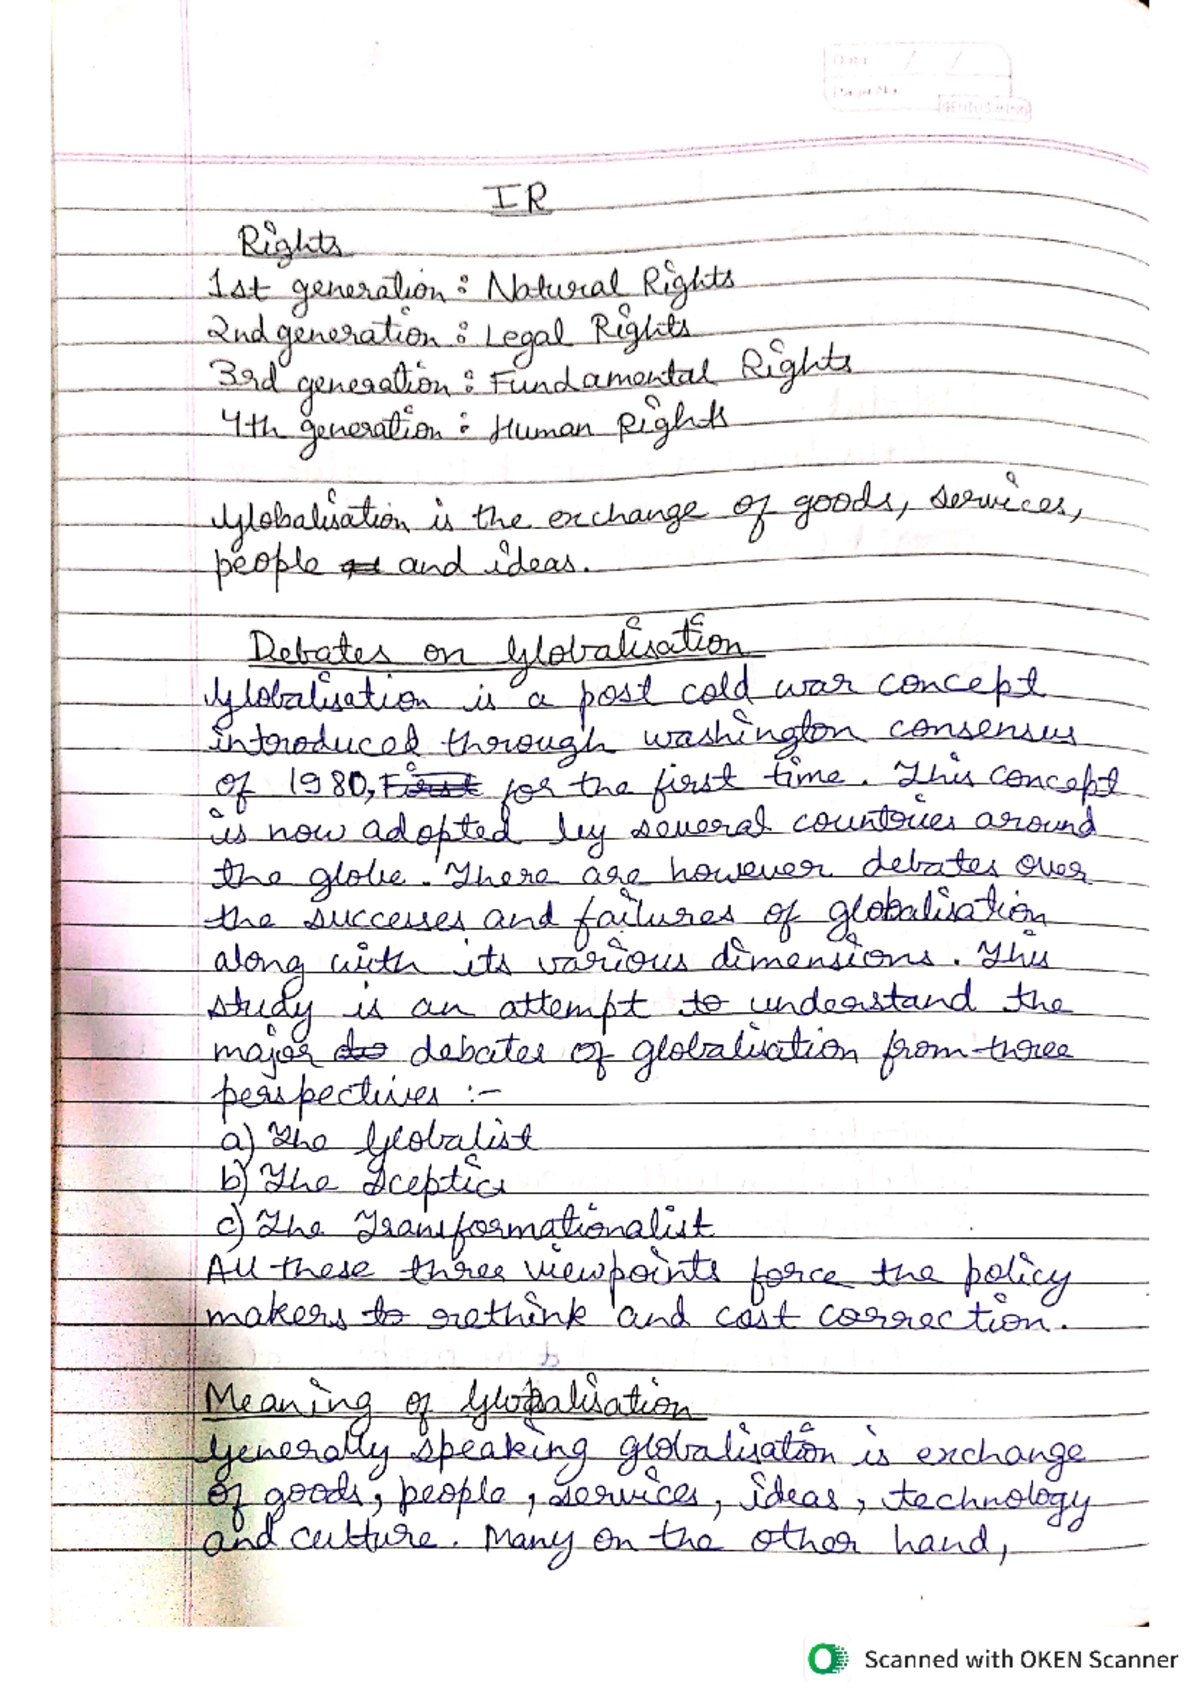 IR
Rights
1st generation : Natural Rights
2nd generation : Legal Rights
3rd generation : Fundamental Rights
4th generation : Human Rights
Globalisation is the exchange of goods, services,
people and ideas.
Debates on Globalisation
Globalisation is a post cold war concept
introduced through washington consensus
of 1980, First for the first time. This concept
is now adopted by several countries around
the globe. There are however debates over
the successes and failures of globalisation
along with its various dimensions. This
study is an attempt to understand the
major debates of globalisation from three
perspectives :-
a) The Globalist
b) The Sceptics
c) The Transformationalist
All these three viewpoints force the policy
makers to rethink and cost correction.
Meaning of Globalisation
Generally speaking globalisation is exchange
of goods, people, services, ideas, technology
and culture. Many on the other hand,
Scanned with OKEN Scanner